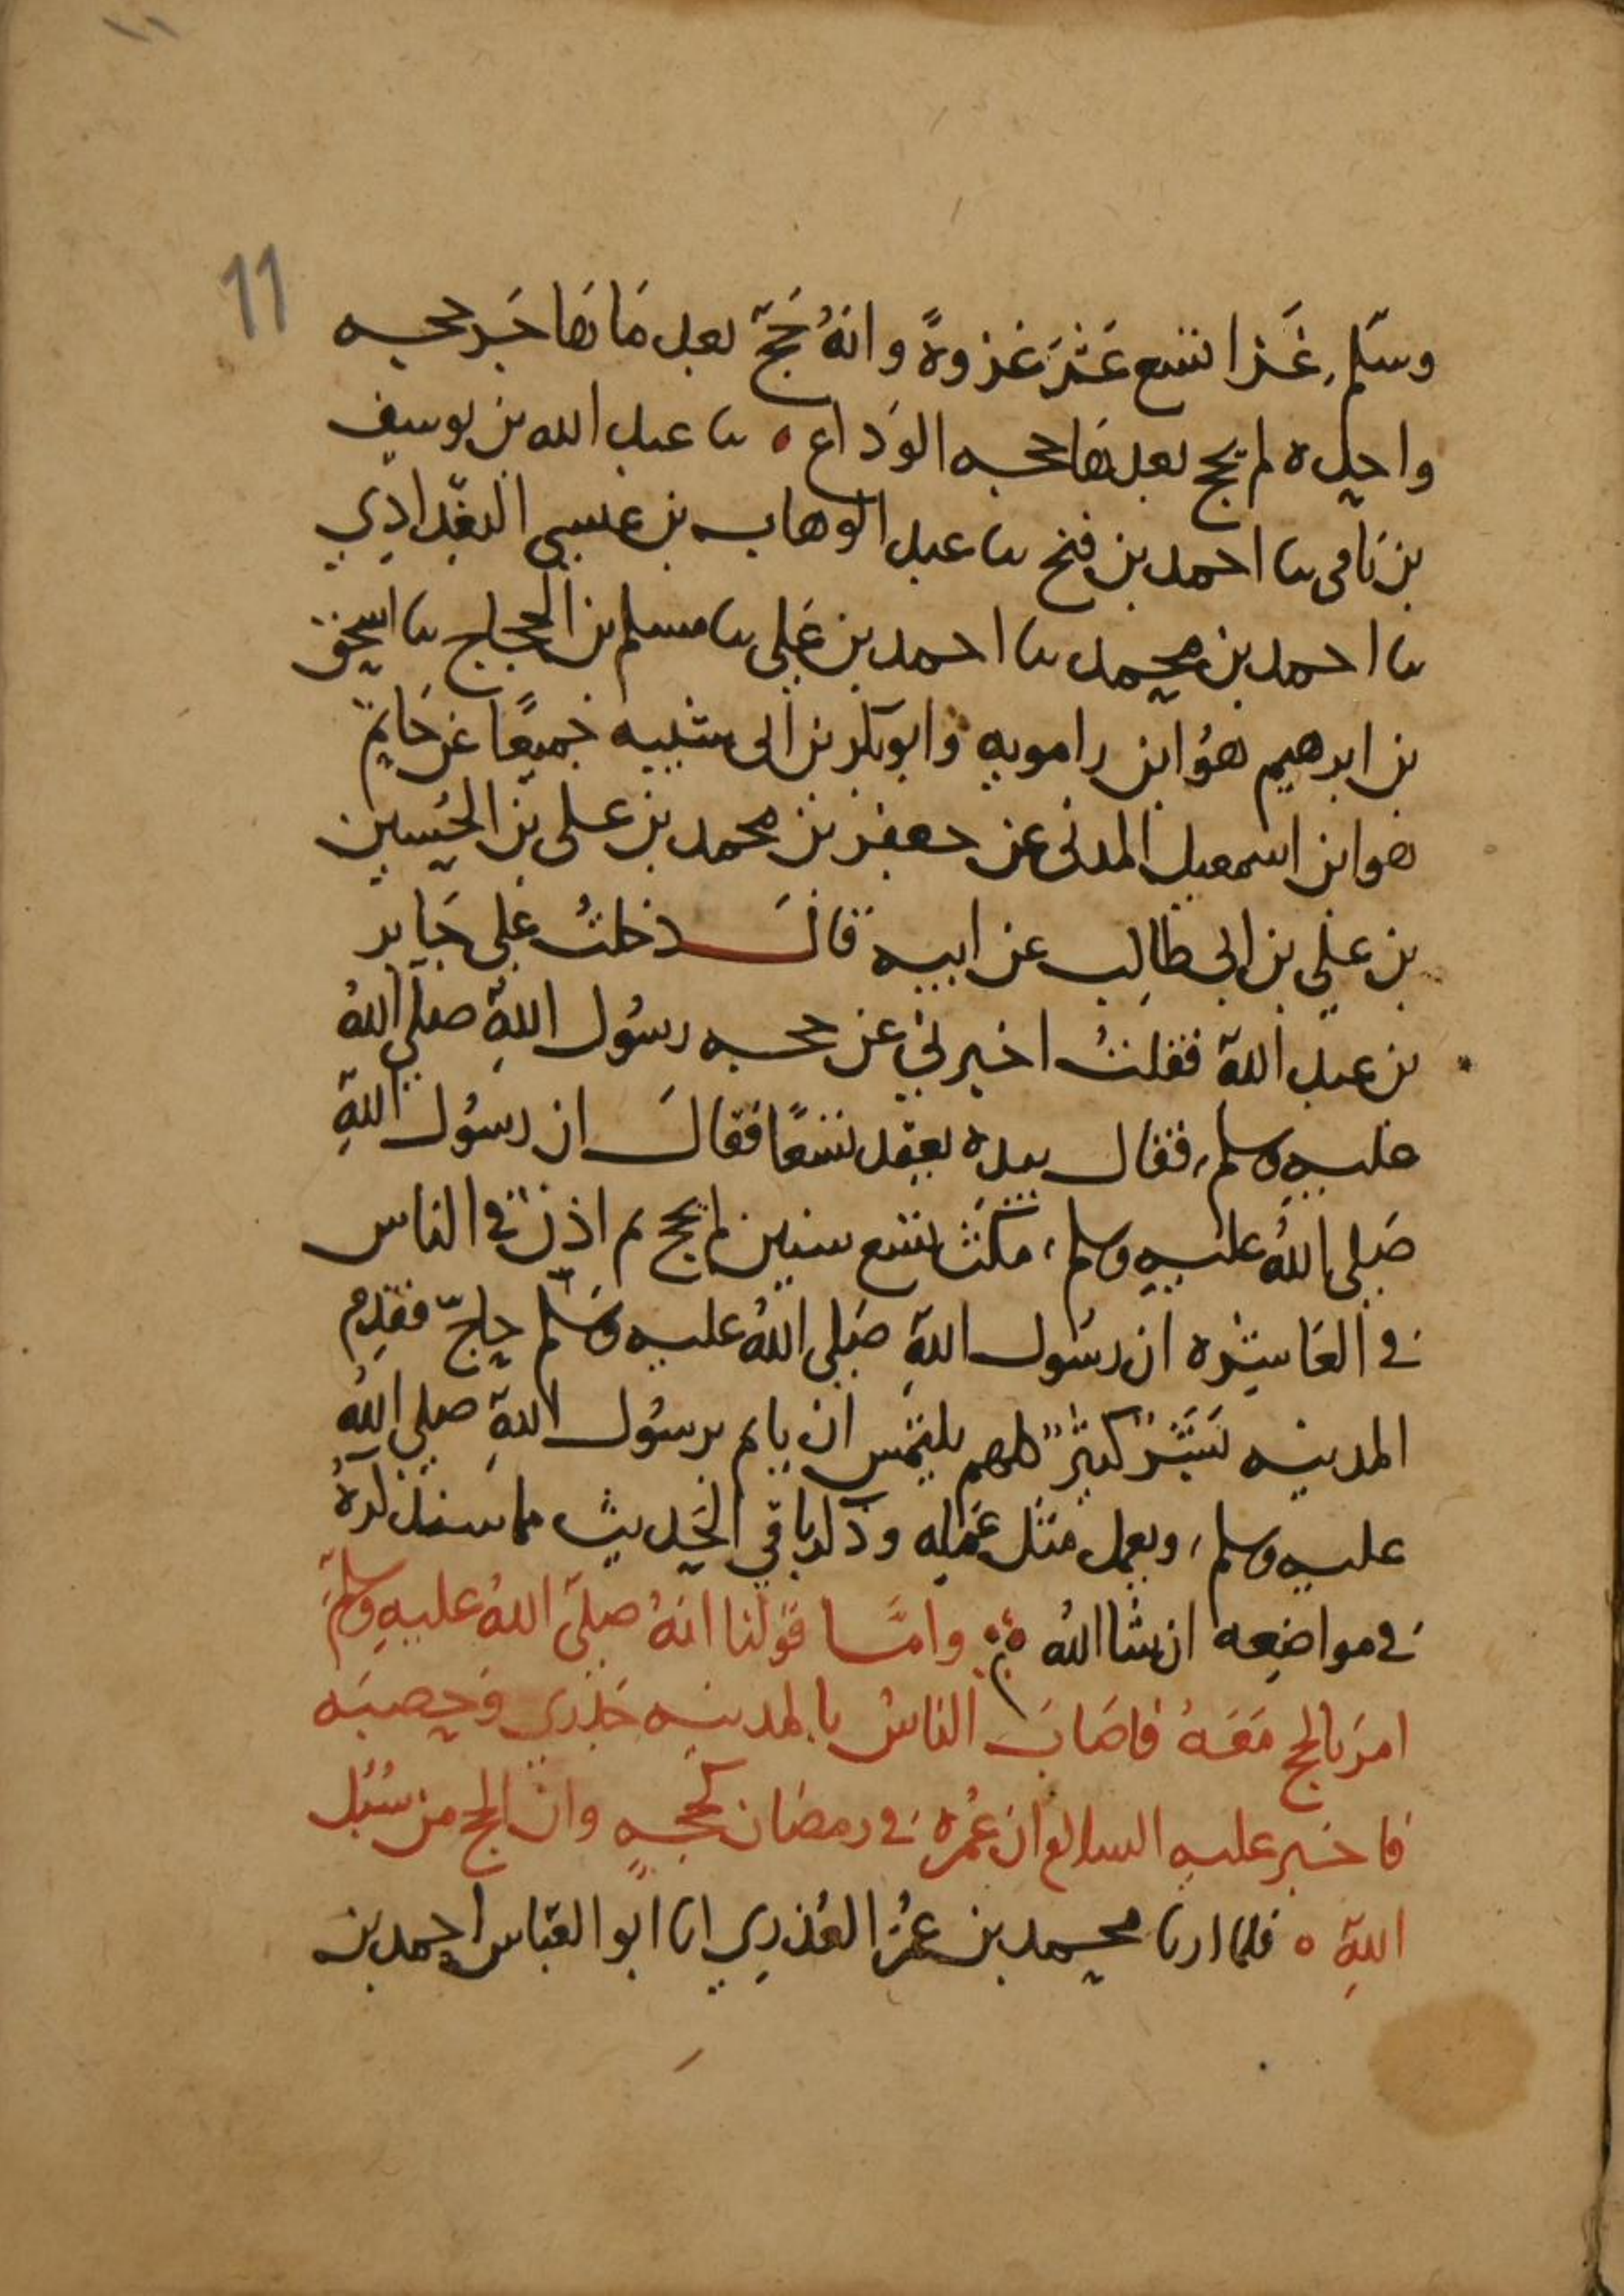 11
وسلّم، غَزا تسع عَشرَ غزوةً وانهُ حَجّ بعد مَا هَاجَر حجه
واحده لم يحج بعدها حجه الوَداع ٥ نا عبد الله بن يوسف
بن نَامى نا احمد بن فتح نا عبد الوهاب بن عيسى البغدادي
نا احمد بن محمد نا احمد بن عَلي نا مسلم بن الحجاج نا اسحق
بن ابرهيم هوُ ابن راهويه وابو بكر بن ابى شيبه جميعًا عن حَاتم
هو ابن اسمعيل المدنى عن جعفر بن محمد بن على بن الحُسين
بن علي بن ابي طالِب عن ابيه قَالَ دخلتُ علي جَابر
بن عبد اللهِ فقلتُ اخبرني عن حجه رسُول اللهِ صلي اللهُ
عليه وسلم، فقال بيده يعقِد تسعًا فقالَ ان رسُول اللهِ
صَلى اللهُ عليهِ وسلم، مكَثَ تسع سنين لم يحج ثم اذن في الناس
في العَاشِره ان رسُول اللهِ صَلي اللهُ عليه وسَلم حاجّ فقدِم
المدينه بَشَرٌ كثيرٌ كلهم يلتمس ان ياتم برسُول اللهِ صلي اللهُ
عليه وسلم، ويعمل مثل عَمَلِه وذكر باقي الحَديث مما سنذكرهُ
في مواضِعه ان شا اللهُ ؞ وامّا قوْلنا انهُ صلّى اللهُ عليهِ وسلّم
امرَ بالحج مَعَهُ فاصَابَ الناسُ بالمدينه جُدَري وَحصبَه
فاخبر عليهِ السلام ان عُمرة في رمضَان كحجهٍ وان الحج من سُبُل
اللهِ ٥ فلما ارنا محمد بن عُمرَ العُذري انا ابو العبّاس احمد بن